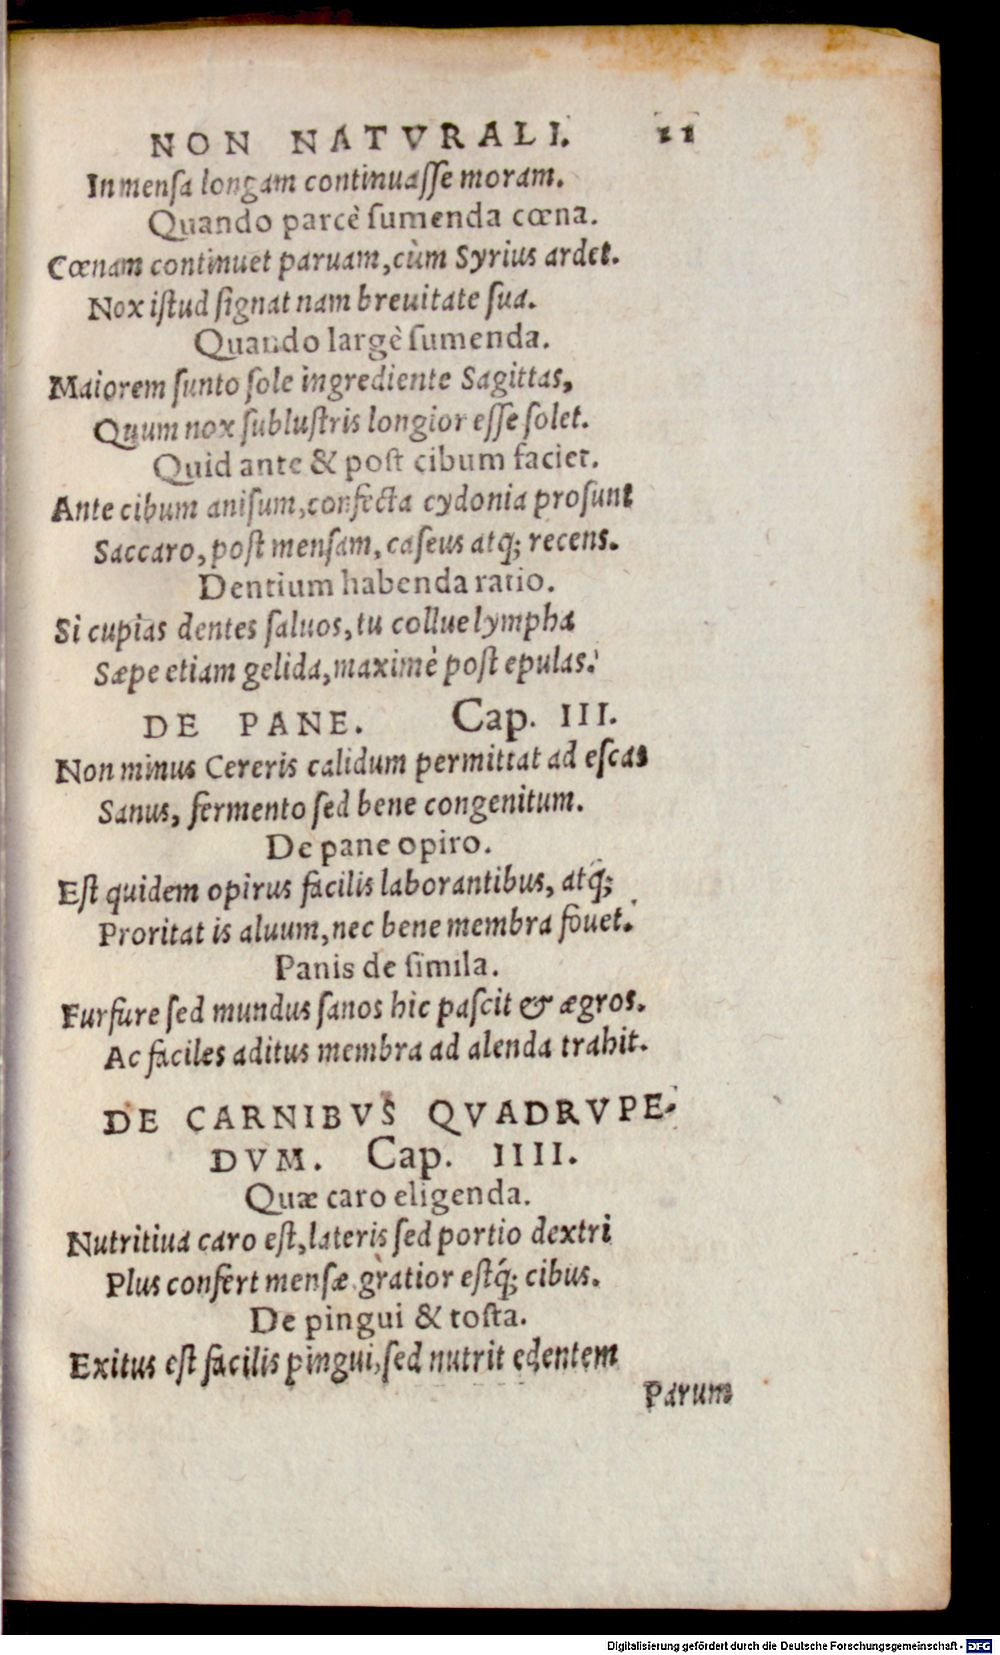 NON NATVRALI. 11
In mensa longam continuasse moram.
Quando parcè sumenda cœna.
Cœnam continuet paruam, cùm Syrius ardet.
Nox istud signat nam breuitate sua.
Quando largè sumenda.
Maiorem sunto sole ingrediente Sagittas,
Quum nox sublustris longior esse solet.
Quid ante & post cibum faciet.
Ante cibum anisum, confecta cydonia prosunt
Saccaro, post mensam, caseus atq; recens.
Dentium habenda ratio.
Si cupias dentes saluos, tu collue lympha
Sæpe etiam gelida, maximè post epulas.
DE PANE. Cap. III.
Non minus Cereris calidum permittat ad escas
Sanus, fermento sed bene congenitum.
De pane opiro.
Est quidem opirus facilis laborantibus, atq́;
Proritat is aluum, nec bene membra fouet.
Panis de simila.
Furfure sed mundus sanos hic pascit & ægros.
Ac faciles aditus membra ad alenda trahit.
DE CARNIBVS QVADRVPE-
DVM. Cap. IIII.
Quæ caro eligenda.
Nutritiua caro est, lateris sed portio dextri
Plus confert mensæ gràtior estq́; cibus.
De pingui & tosta.
Exitus est facilis pingui, sed nutrit edentem
Parum
Digitalisierung gefördert durch die Deutsche Forschungsgemeinschaft - DFG